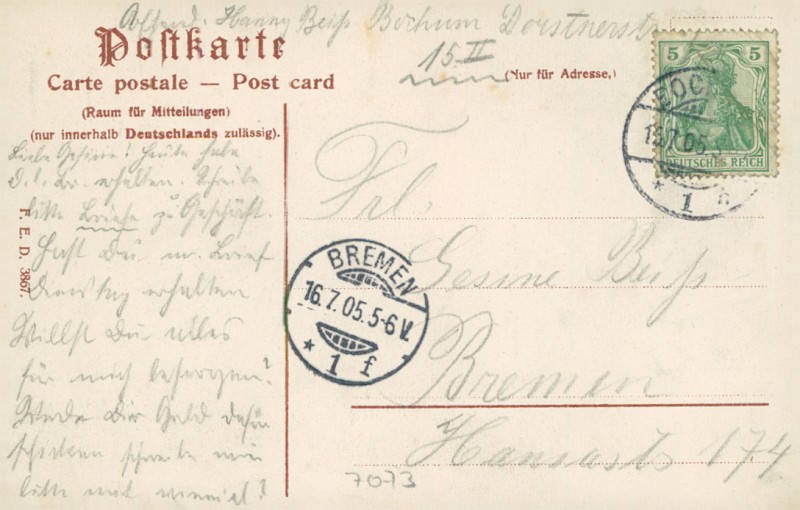 Absend. Hanny Beiß Bochum Dorstnerstr.
15 II
Postkarte
Carte postale — Post card
(Nur für Adresse.)
(Raum für Mitteilungen)
(nur innerhalb Deutschlands zulässig).
Liebe Gesine! Heute habe
D. l. Br. erhalten. Schreibe
bitte Briefe zu Geschäft.
Hast Du m. Brief
Dienstag erhalten
Willst Du alles
für mich besorgen?
Werde Dir Geld dafür
schicken schreibe mir
bitte mit
F. E. D. 3867.
Frl.
Gesine Beiß
Bremen
Hansastr 174
7073
5 5
DEUTSCHES REICH
BOC
15.7.05.
* 1 n
BREMEN
16.7.05.5-6 V.
* 1 f